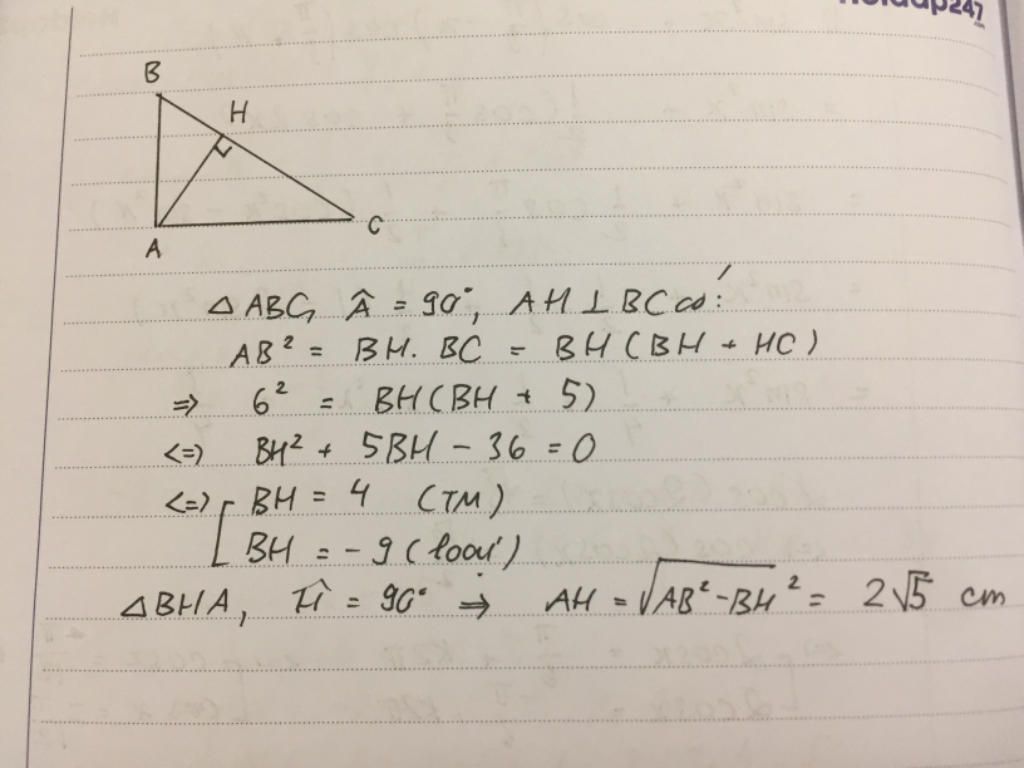 hoidap247
B
H
A
C
△ABC, Â = 90°, AH ⊥ BC có:
AB² = BH. BC = BH(BH + HC)
=> 6² = BH(BH + 5)
<=> BH² + 5BH - 36 = 0
<=> [ BH = 4 (TM)
BH = -9 (loại)
△BHA, Ĥ = 90° => AH = √AB² - BH² = 2√5 cm